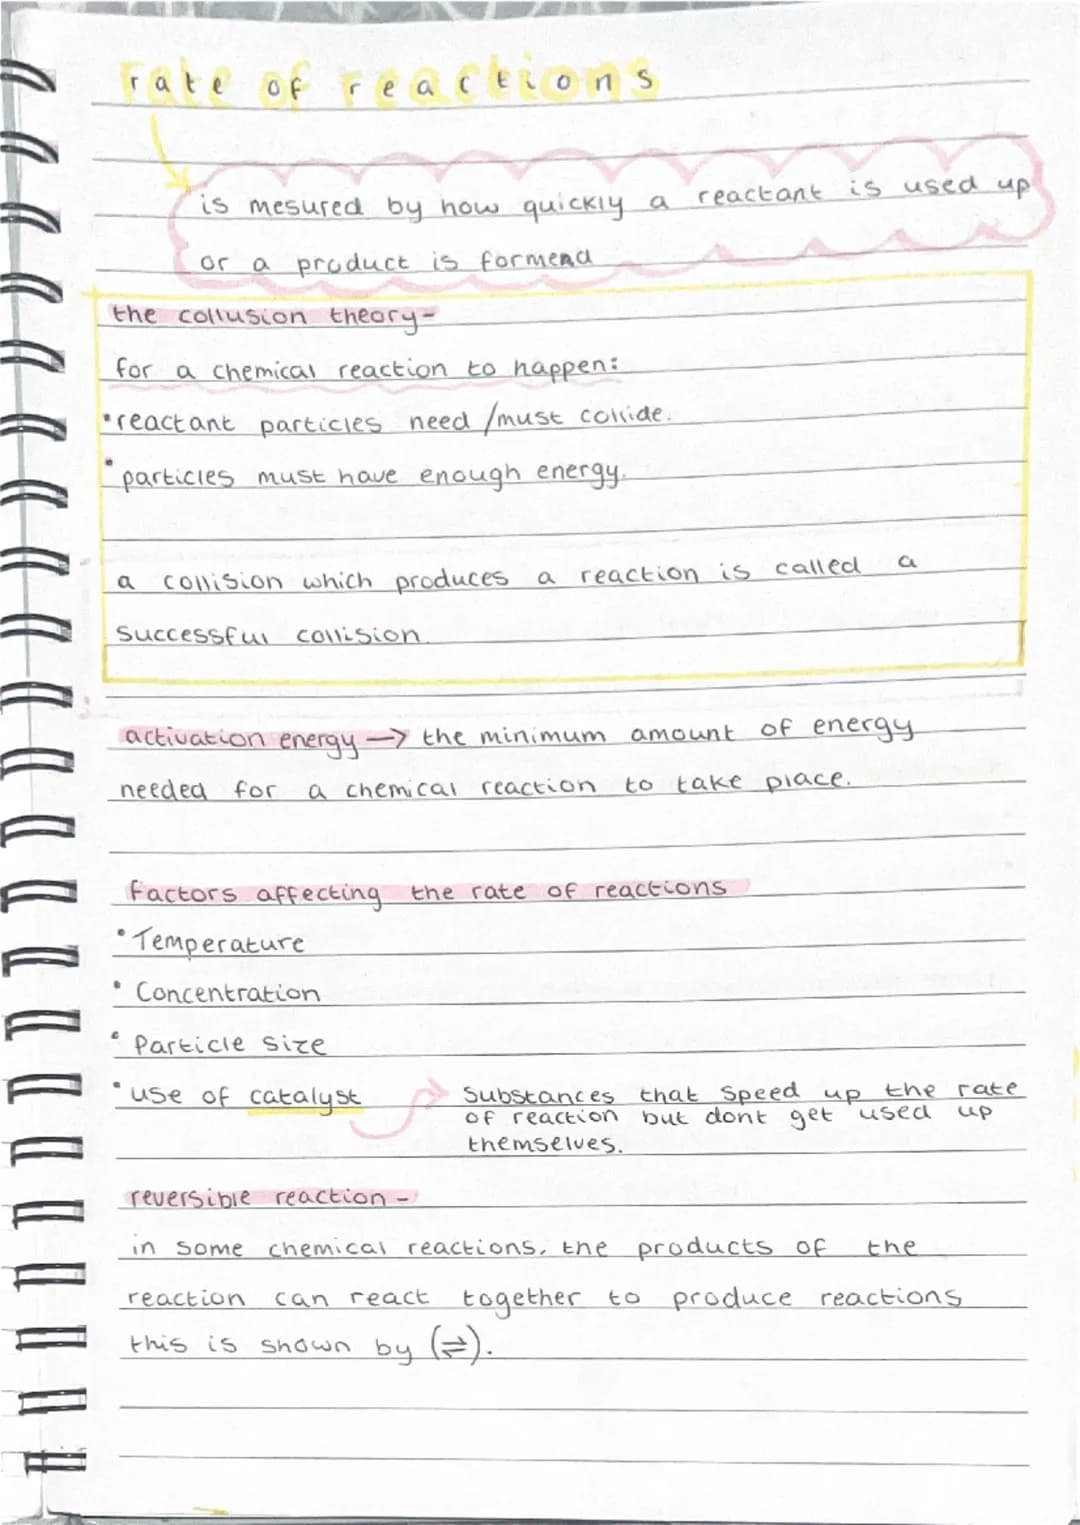 rate of reactions
is mesured by how quickly a reactant is used up
or a product is formend
the collusion theory-
for a chemical reaction to happen:
•reactant particles need /must collide.
•particles must have enough energy.
a collision which produces a reaction is called a
successful collision.
activation energy → the minimum amount of energy
needed for a chemical reaction to take place.
factors affecting the rate of reactions
•Temperature
•Concentration
•Particle size
•use of catalyst
Substances that speed up the rate
of reaction but dont get used up
themselves.
reversible reaction -
in some chemical reactions, the products of the
reaction can react together to produce reactions
this is shown by (⇌).